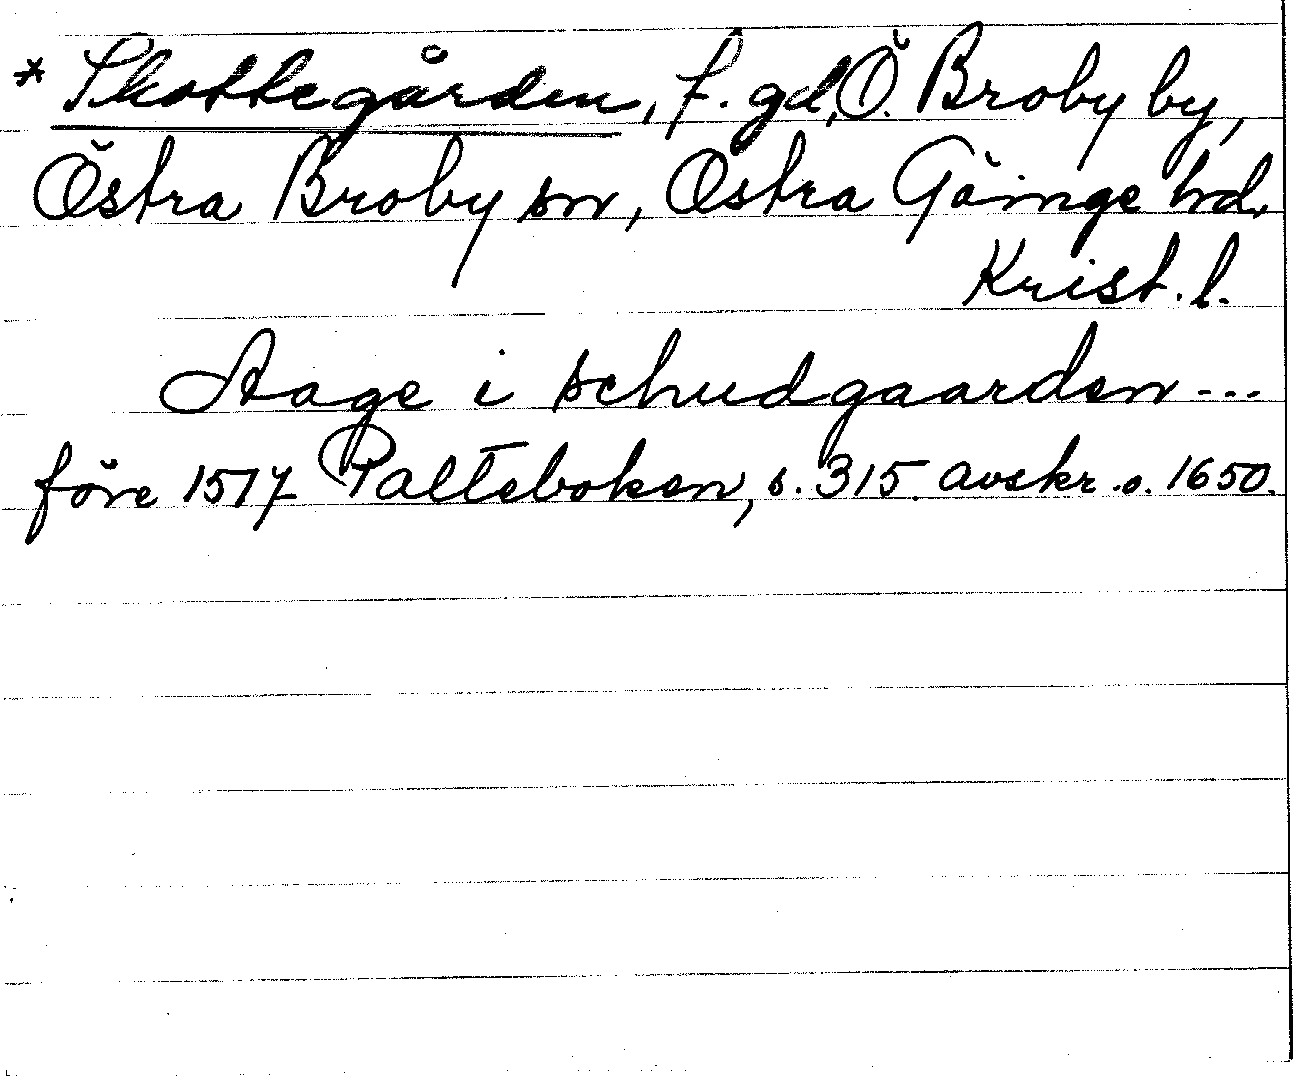 * Skottegården, f. gd, Ö. Broby by,
Östra Broby sn, Östra Göinge hrd.
Krist. l.
Aage i schudgaarden ...
före 1517 Palteboken, s. 315. avskr. o. 1650.